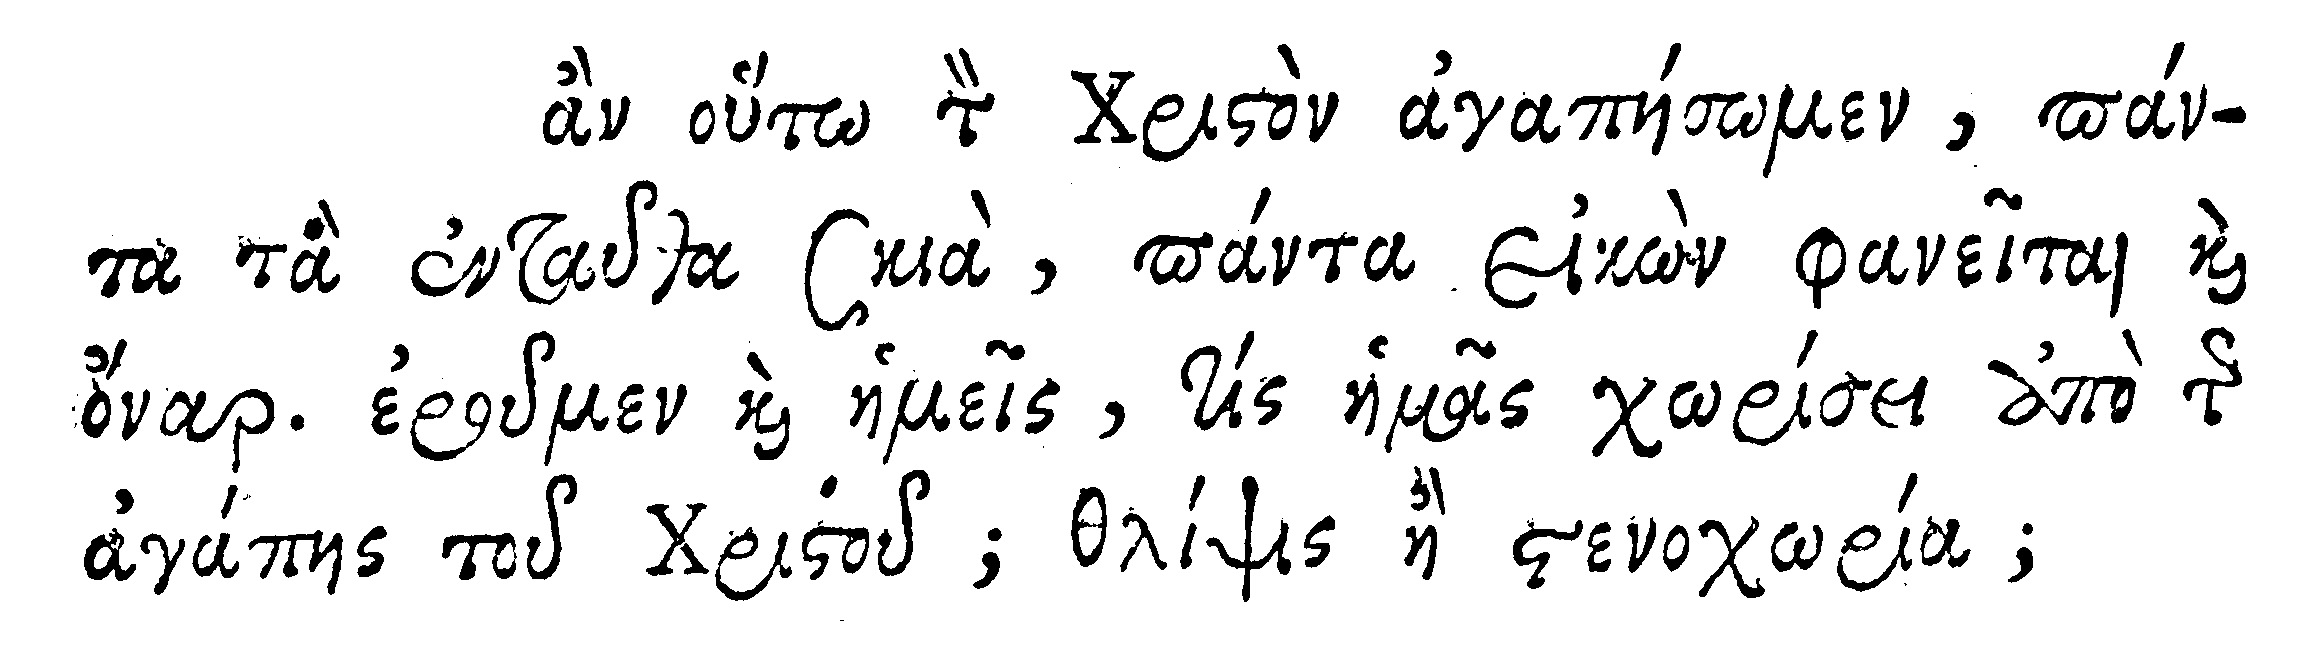 ἂν οὕτω τὸν Χριστὸν ἀγαπήσωμεν, πάν-
τα τὰ ἐνταῦθα σκιὰ, πάντα εἰκὼν φανεῖται καὶ
ὄναρ. ἐροῦμεν καὶ ἡμεῖς, τίς ἡμᾶς χωρίσει ἀπὸ τῆς
ἀγάπης τοῦ Χριστοῦ; θλίψις ἢ στενοχωρία;